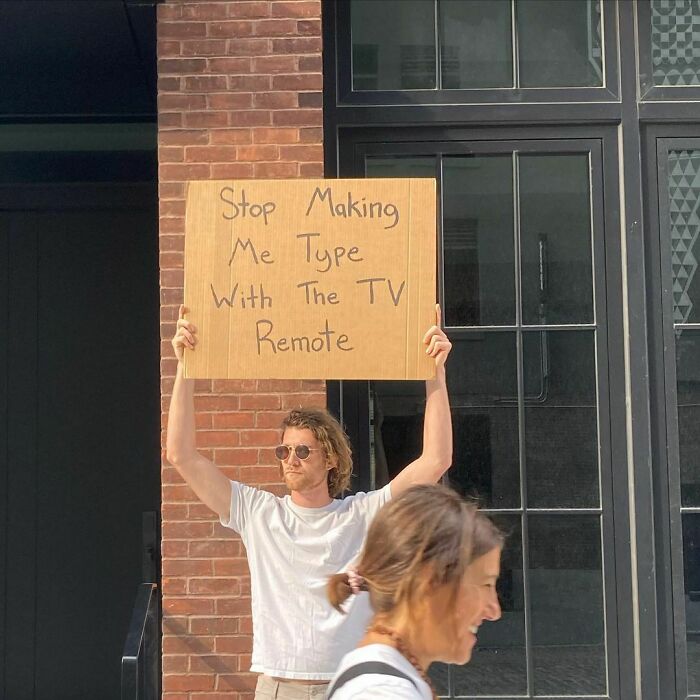 Stop Making
Me Type
With The TV
Remote